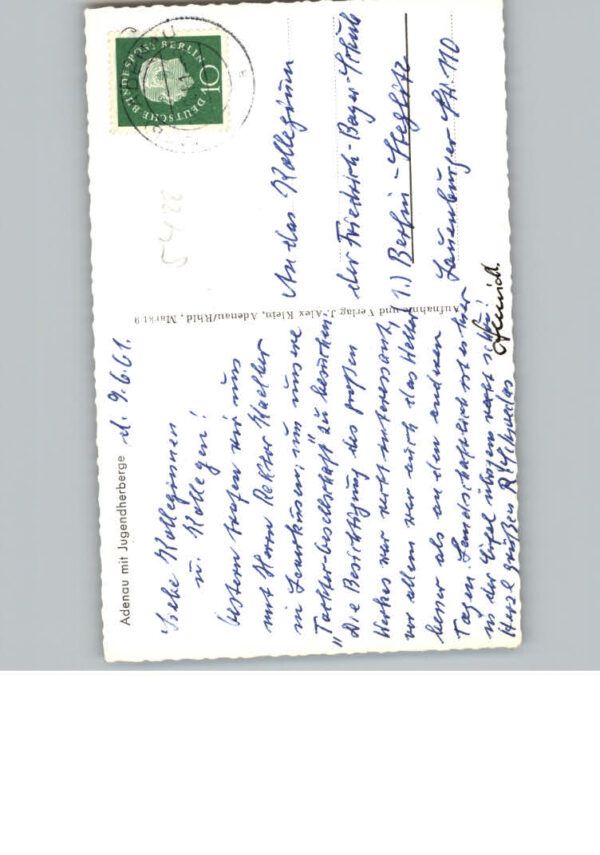 Adenau mit Jugendherberge
d. 9.6.61.
Liebe Kolleginnen
u. Kollegen!
Gestern trafen wir uns
mit Herrn Rektor Kaehler
in Leverkusen, um unsere
"Tochter-Gesellschaft" zu besuchen.
Die Besichtigung des großen
Werkes war sehr interessant,
vor allem war auch das Wetter
besser als an den anderen
Tagen. Landschaftlich ist es hier
in der Eifel übrigens sehr schön!
Herzl. Grüßen
Aufnahme und Verlag J. Alex Klein, Adenau/Rhld., Markt 9
DEUTSCHE BUNDESPOST BERLIN
10
ADENAU
5422
An das Kollegium
der Friedrich-Bayer-Schule
1.) Berlin-Steglitz
Lauenburger Str. 110